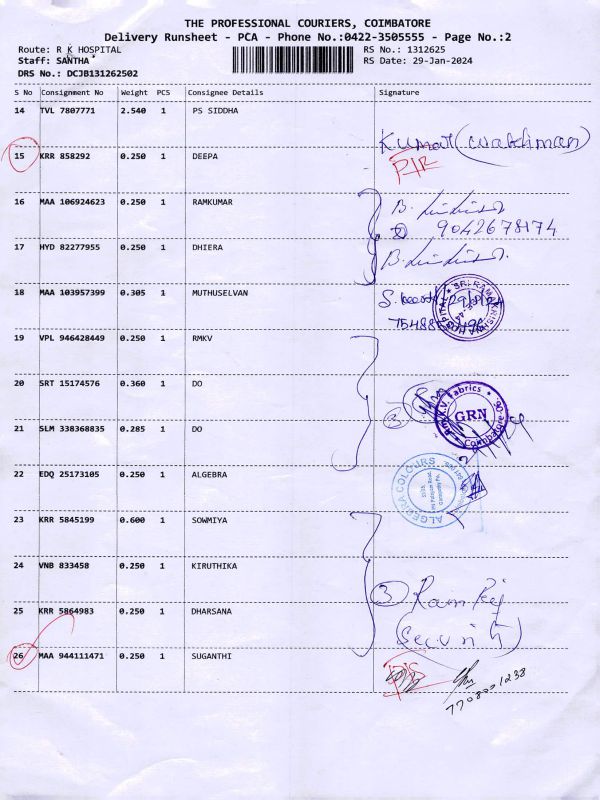 THE PROFESSIONAL COURIERS, COIMBATORE
Delivery Runsheet - PCA - Phone No.:0422-3505555 - Page No.:2
Route: R K HOSPITAL
RS No.: 1312625
Staff: SANTHA
RS Date: 29-Jan-2024
DRS No.: DCJB131262502
S No Consignment No Weight PCS Consignee Details Signature
14 TVL 7807771 2.540 1 PS SIDDHA
Kumar (watchman)
15 KRR 858292 0.250 1 DEEPA
16 MAA 106924623 0.250 1 RAMKUMAR
9042678174
17 HYD 82277955 0.250 1 DHIERA
18 MAA 103957399 0.305 1 MUTHUSELVAN
19 VPL 946428449 0.250 1 RMKV
20 SRT 15174576 0.360 1 DO
3
RmKV Fabrics
GRN
Coimbatore
21 SLM 338368835 0.285 1 DO
22 EDQ 25173105 0.250 1 ALGEBRA
ALGEBRA COLOURS
23 KRR 5845199 0.600 1 SOWMIYA
24 VNB 833458 0.250 1 KIRUTHIKA
3
25 KRR 5864983 0.250 1 DHARSANA
26 MAA 944111471 0.250 1 SUGANTHI
7708001238